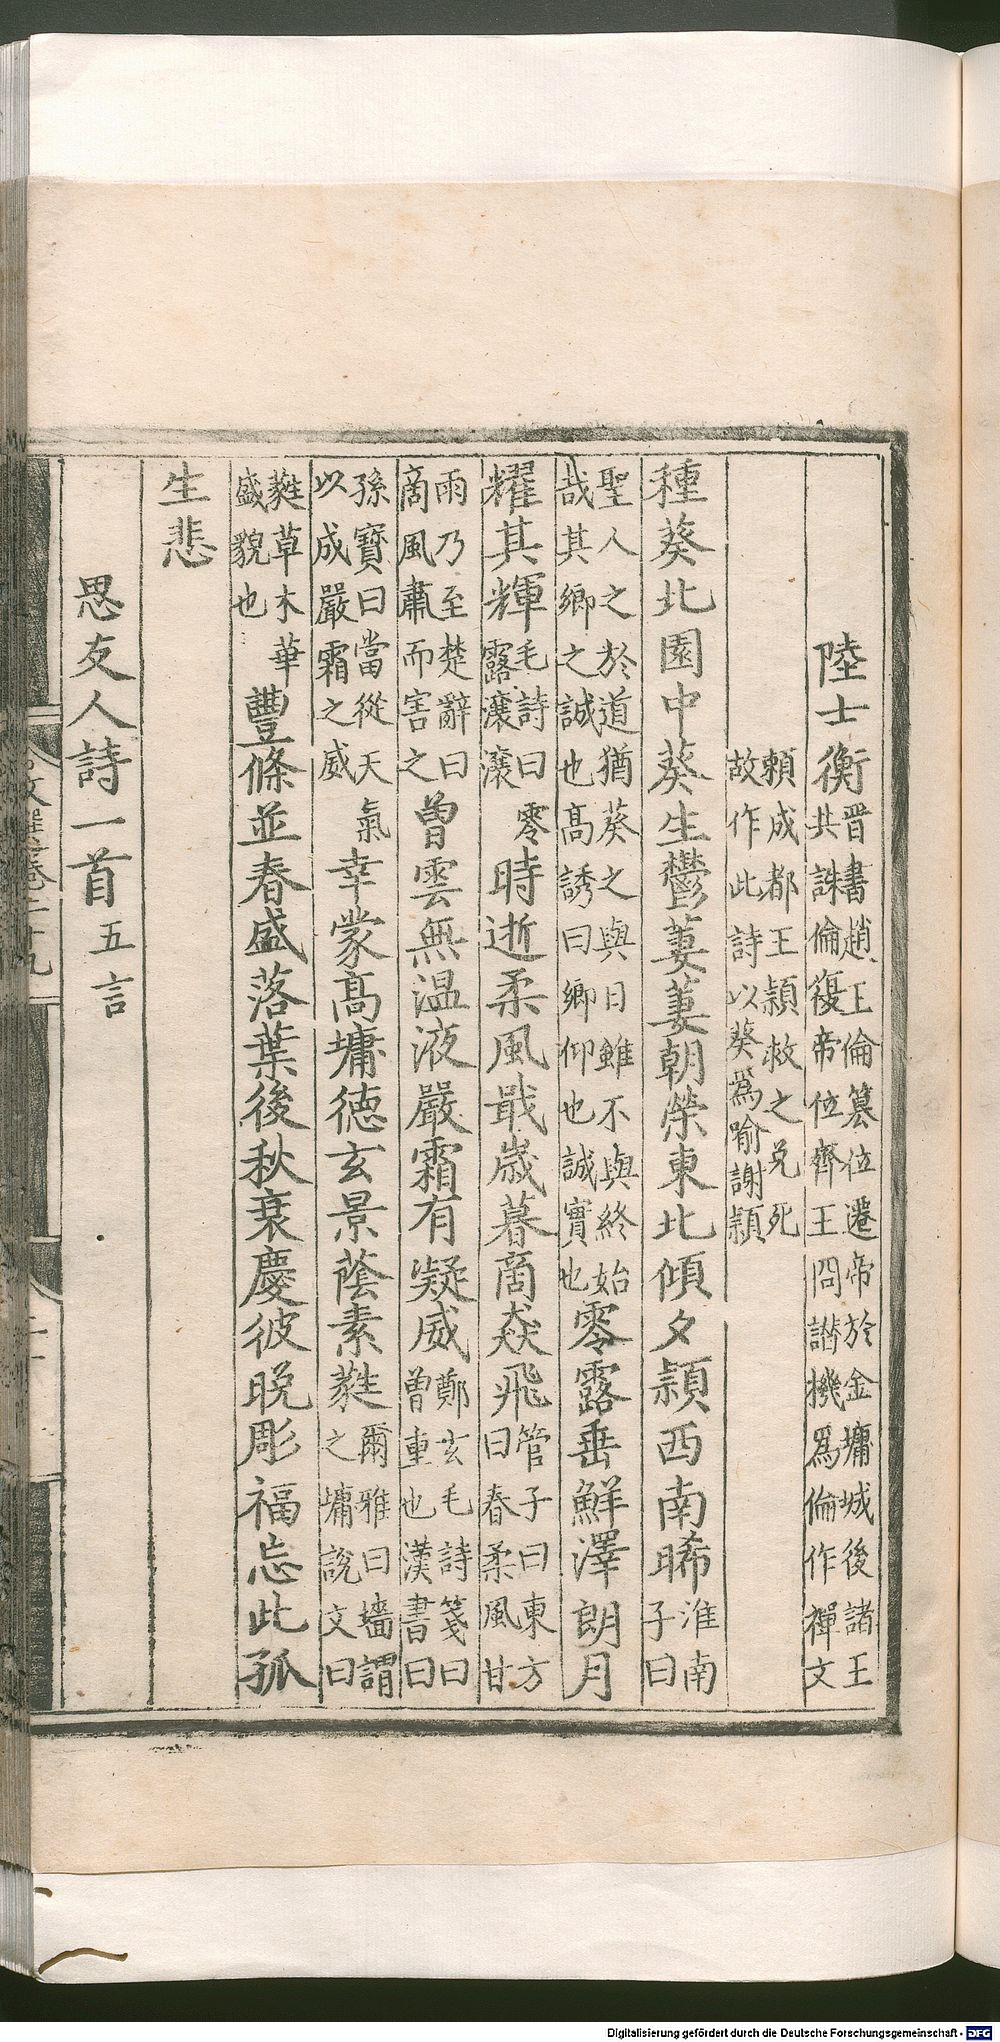 陸士衡晋書趙王倫簒位遷帝於金墉城後諸王共誅倫復帝位齊王冏譖機爲倫作禪文
頼成都王穎救之免死故作此詩以葵爲喻謝穎
種葵北園中葵生鬱萋萋朝榮東北傾夕穎西南晞淮南子曰
聖人之於道猶葵之與日雖不與終始哉其鄉之誠也高誘曰鄉仰也誠實也零露垂鮮澤朗月
耀其輝毛詩曰零露瀼瀼時逝柔風戢歲暮商猋飛管子曰東方曰春柔風甘
雨乃至楚辭曰商風肅而害之曾雲無温液嚴霜有凝威鄭玄毛詩箋曰曾重也漢書曰
孫寶曰當從天氣以成嚴霜之威幸蒙高墉德玄景蔭素蕤爾雅曰墻謂之墉說文曰
蕤草木華盛貌也豐條並春盛落葉後秋衰慶彼晚彫福忘此孤
生悲
思友人詩一首五言
文選卷二十九
Digitalisierung gefördert durch die Deutsche Forschungsgemeinschaft - DFG